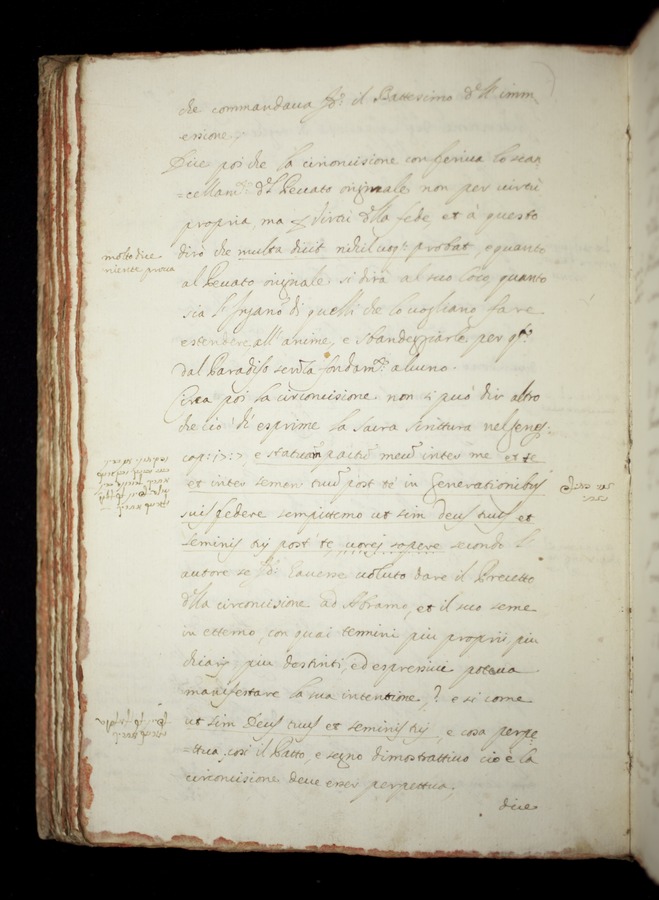 che commandaua Id: il Battesimo d'll imm-
ersione.
Dice poi che la circoncisione conferiua lo scan
=cellam.to d'l Peccato originale non per uirtù
propria, ma p uirtù d'lla fede, et à questo
dirò che multa dicit nihil uog: probat, e quanto
molto dice
niente proua
al Peccato originale si dirà al suo loco quanto
sia l'Ingano di quelli che lo uogliano fare
estendere all'anime, e sbandeggiarle per q.to
dal Paradiso senza fondam.to alcuno.
Circa poi la circoncisione non si può dir altro
che ciò di esprime la sacra scrittura nel Genes:
cap: 17: 7, e statuam pactū meū inter me et te
et inter semen tuū post te in Generationibus
suis federe sempiterno ut sim Deus tuus et
seminis tui post te, uorei sapere secondo l'
autore se Id: hauesse uoluto dare il Precetto
d'lla circoncisione ad Abramo, et il suo seme
in etterno, con quai termini piu proprii piu
chiari, piu destinti, ed espressiui poteua
manifestare la sua intentione,? e si come
ut sim Deus tuus et seminis tui, e cosa perpe
=ttua, cosi il Patto, e segno dimostrattiuo cio e la
circoncisione deue esser perpettua.
dice